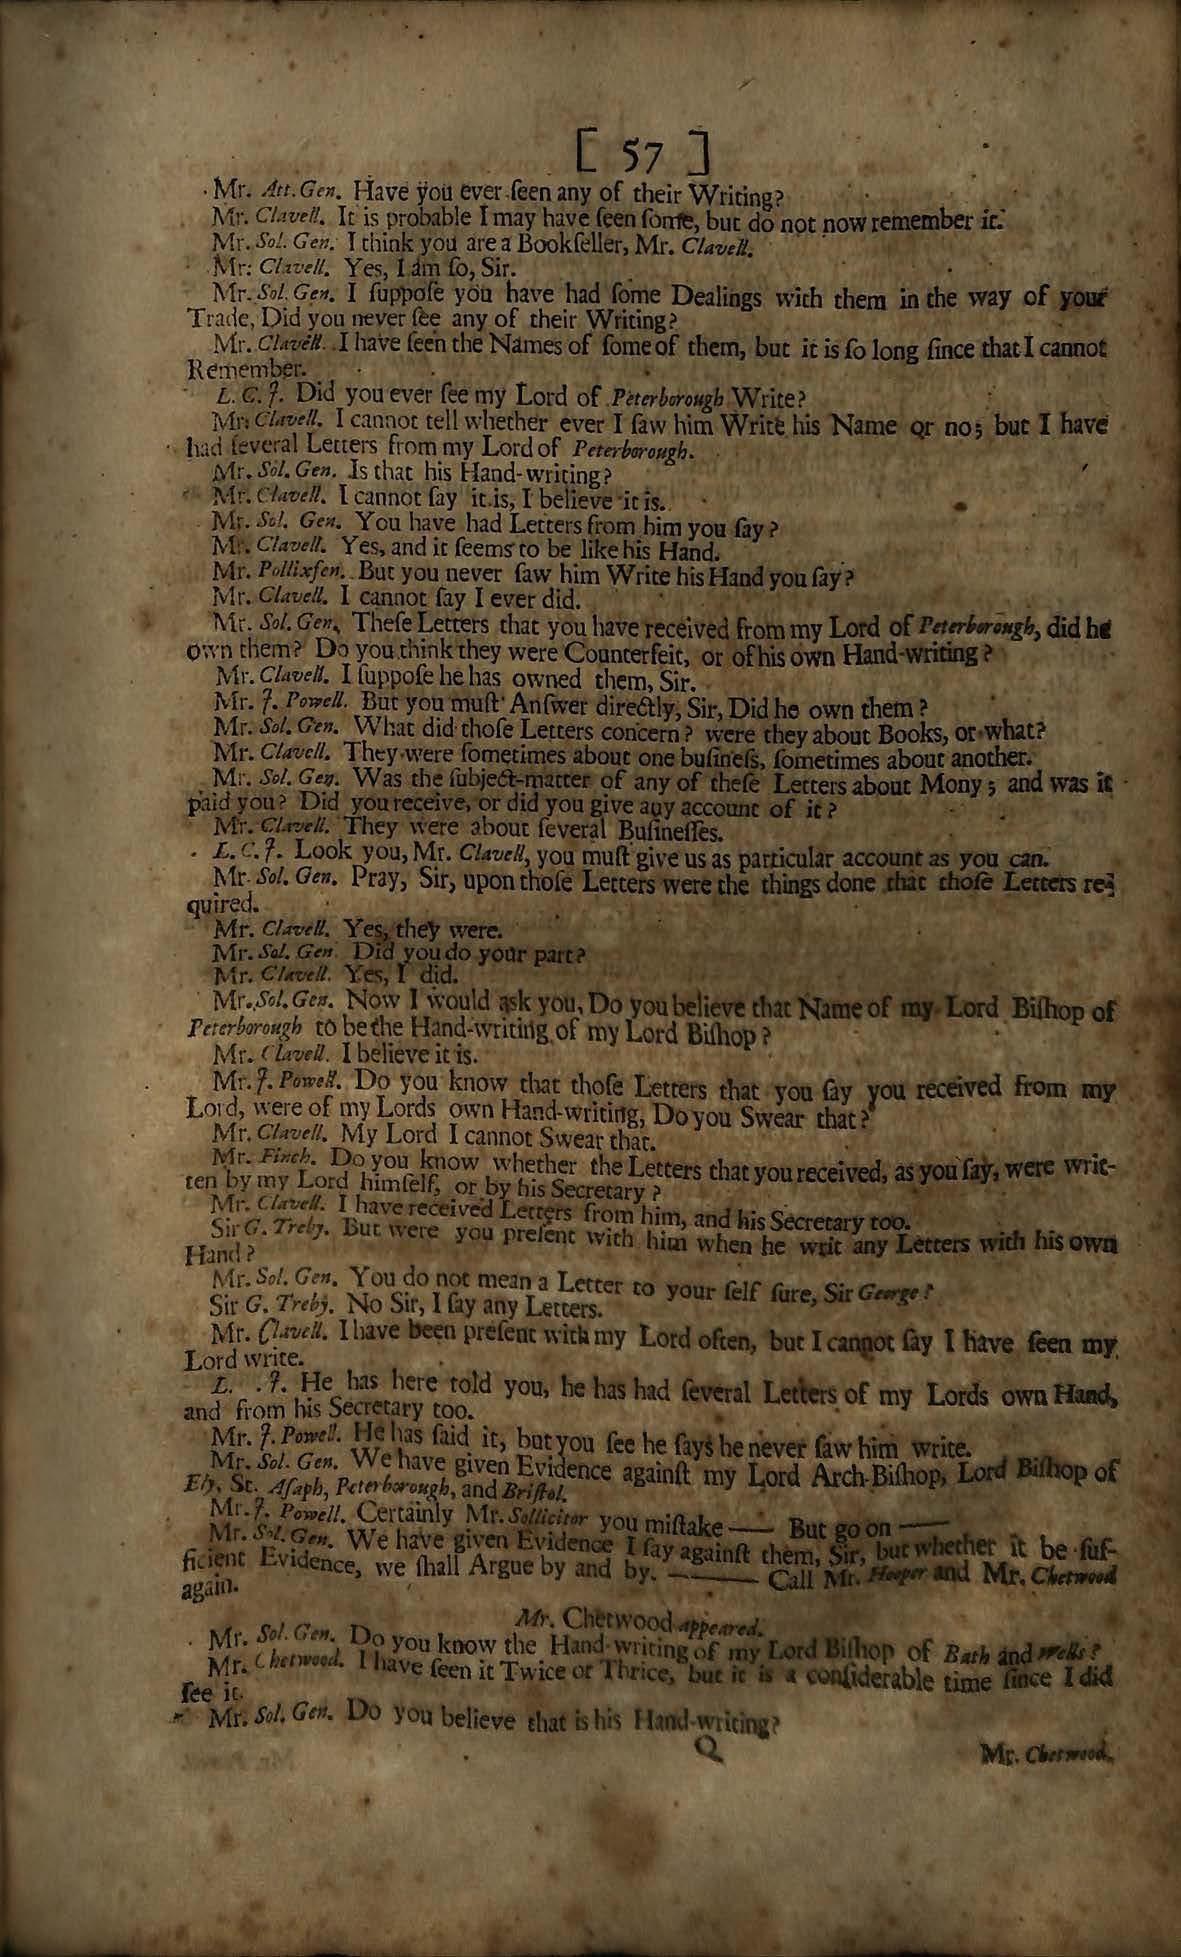 [ 57 ]
Mr. Att. Gen. Have you ever ſeen any of their Writing?
Mr. Clavell. It is probable I may have ſeen ſome, but do not now remember it.
Mr. Sol. Gen. I think you are a Bookſeller, Mr. Clavell.
Mr. Clavell. Yes, I am ſo, Sir.
Mr. Sol. Gen. I ſuppoſe you have had ſome Dealings with them in the way of your
Trade, Did you never ſee any of their Writing?
Mr. Clavell. I have ſeen the Names of ſome of them, but it is ſo long ſince that I cannot
Remember.
L. C. J. Did you ever ſee my Lord of Peterborough Write?
Mr. Clavell. I cannot tell whether ever I ſaw him Write his Name or no; but I have
had ſeveral Letters from my Lord of Peterborough.
Mr. Sol. Gen. Is that his Hand-writing?
Mr. Clavell. I cannot ſay it is, I believe it is.
Mr. Sol. Gen. You have had Letters from him you ſay?
Mr. Clavell. Yes, and it ſeems to be like his Hand.
Mr. Pollixfen. But you never ſaw him Write his Hand you ſay?
Mr. Clavell. I cannot ſay I ever did.
Mr. Sol. Gen. Theſe Letters that you have received from my Lord of Peterborough, did he
own them? Do you think they were Counterfeit, or of his own Hand-writing?
Mr. Clavell. I ſuppoſe he has owned them, Sir.
Mr. J. Powell. But you muſt Anſwer directly, Sir, Did he own them?
Mr. Sol. Gen. What did thoſe Letters concern? were they about Books, or what?
Mr. Clavell. They were ſometimes about one buſineſs, ſometimes about another.
Mr. Sol. Gen. Was the ſubject-matter of any of theſe Letters about Mony; and was it
paid you? Did you receive, or did you give any account of it?
Mr. Clavell. They were about ſeveral Buſineſſes.
L. C. J. Look you, Mr. Clavell, you muſt give us as particular account as you can.
Mr. Sol. Gen. Pray, Sir, upon thoſe Letters were the things done that thoſe Letters re-
quired.
Mr. Clavell. Yes, they were.
Mr. Sol. Gen. Did you do your part?
Mr. Clavell. Yes, I did.
Mr. Sol. Gen. Now I would ask you, Do you believe that Name of my Lord Biſhop of
Peterborough to be the Hand-writing of my Lord Biſhop?
Mr. Clavell. I believe it is.
Mr. J. Powell. Do you know that thoſe Letters that you ſay you received from my
Lord, were of my Lords own Hand-writing, Do you Swear that?
Mr. Clavell. My Lord I cannot Swear that.
Mr. Finch. Do you know whether the Letters that you received, as you ſay, were writ-
ten by my Lord himſelf, or by his Secretary?
Mr. Clavell. I have received Letters from him, and his Secretary too.
Sir G. Treby. But were you preſent with him when he writ any Letters with his own
Hand?
Mr. Sol. Gen. You do not mean a Letter to your ſelf ſure, Sir George?
Sir G. Treby. No Sir, I ſay any Letters.
Mr. Clavell. I have been preſent with my Lord often, but I cannot ſay I have ſeen my
Lord write.
L. . J. He has here told you, he has had ſeveral Letters of my Lords own Hand,
and from his Secretary too.
Mr. J. Powell. He has ſaid it, but you ſee he ſays he never ſaw him write.
Mr. Sol. Gen. We have given Evidence againſt my Lord Arch-Biſhop, Lord Biſhop of
Ely, St. Aſaph, Peterborough, and Briſtol.
Mr. J. Powell. Certainly Mr. Sollicitor you miſtake —— But go on ——
Mr. Sol. Gen. We have given Evidence I ſay againſt them, Sir, but whether it be ſuf-
ficient Evidence, we ſhall Argue by and by. ——— Call Mr. Hooper and Mr. Chetwood
again.
Mr. Chetwood appeared.
Mr. Sol. Gen. Do you know the Hand-writing of my Lord Biſhop of Bath and Wells?
Mr. Chetwood. I have ſeen it Twice or Thrice, but it is a conſiderable time ſince I did
ſee it.
Mr. Sol. Gen. Do you believe that is his Hand-writing?
Q
Mr. Chetwood.